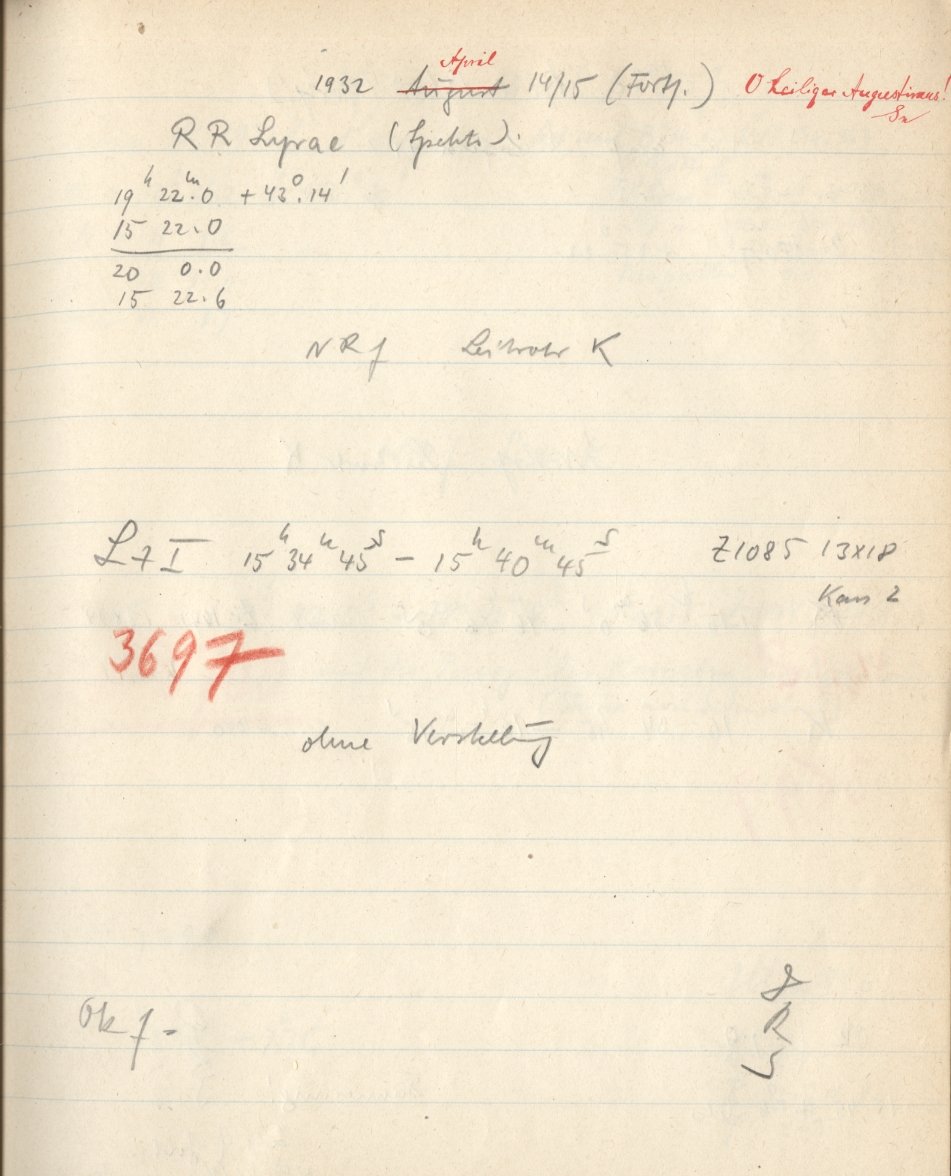 April
1932 August 14/15 (Forts.) O heiliger Augustinus!
Sn
RR Lyrae (Spektr.).
19h 22m.0 +43°.14'
15 22.0
20 0.0
15 22.6
NRf Leitrohr K
L7I 15h 34m 45s – 15h 40m 45s Z1085 13x18
Kass 2
3697
ohne Verstellung
Ok f =